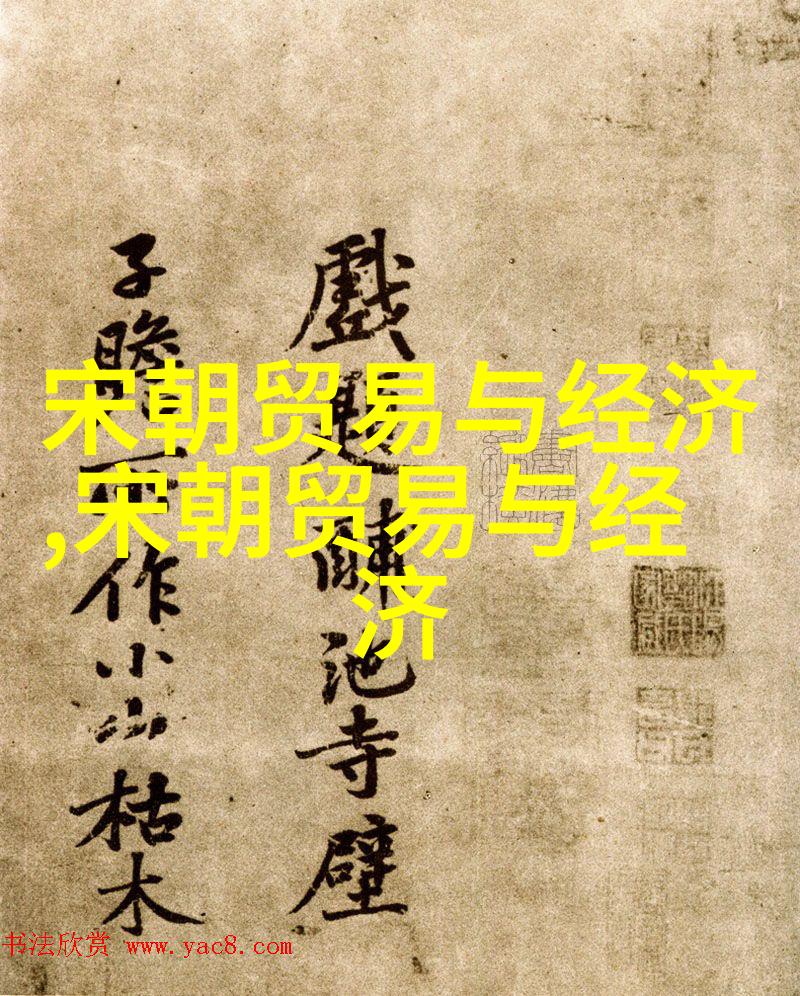 宋朝贸易与经济
,宋朝贸易与经
济
戲題酺池寺壁
子瞻作小山枯木
书法欣赏 www.yac8.com